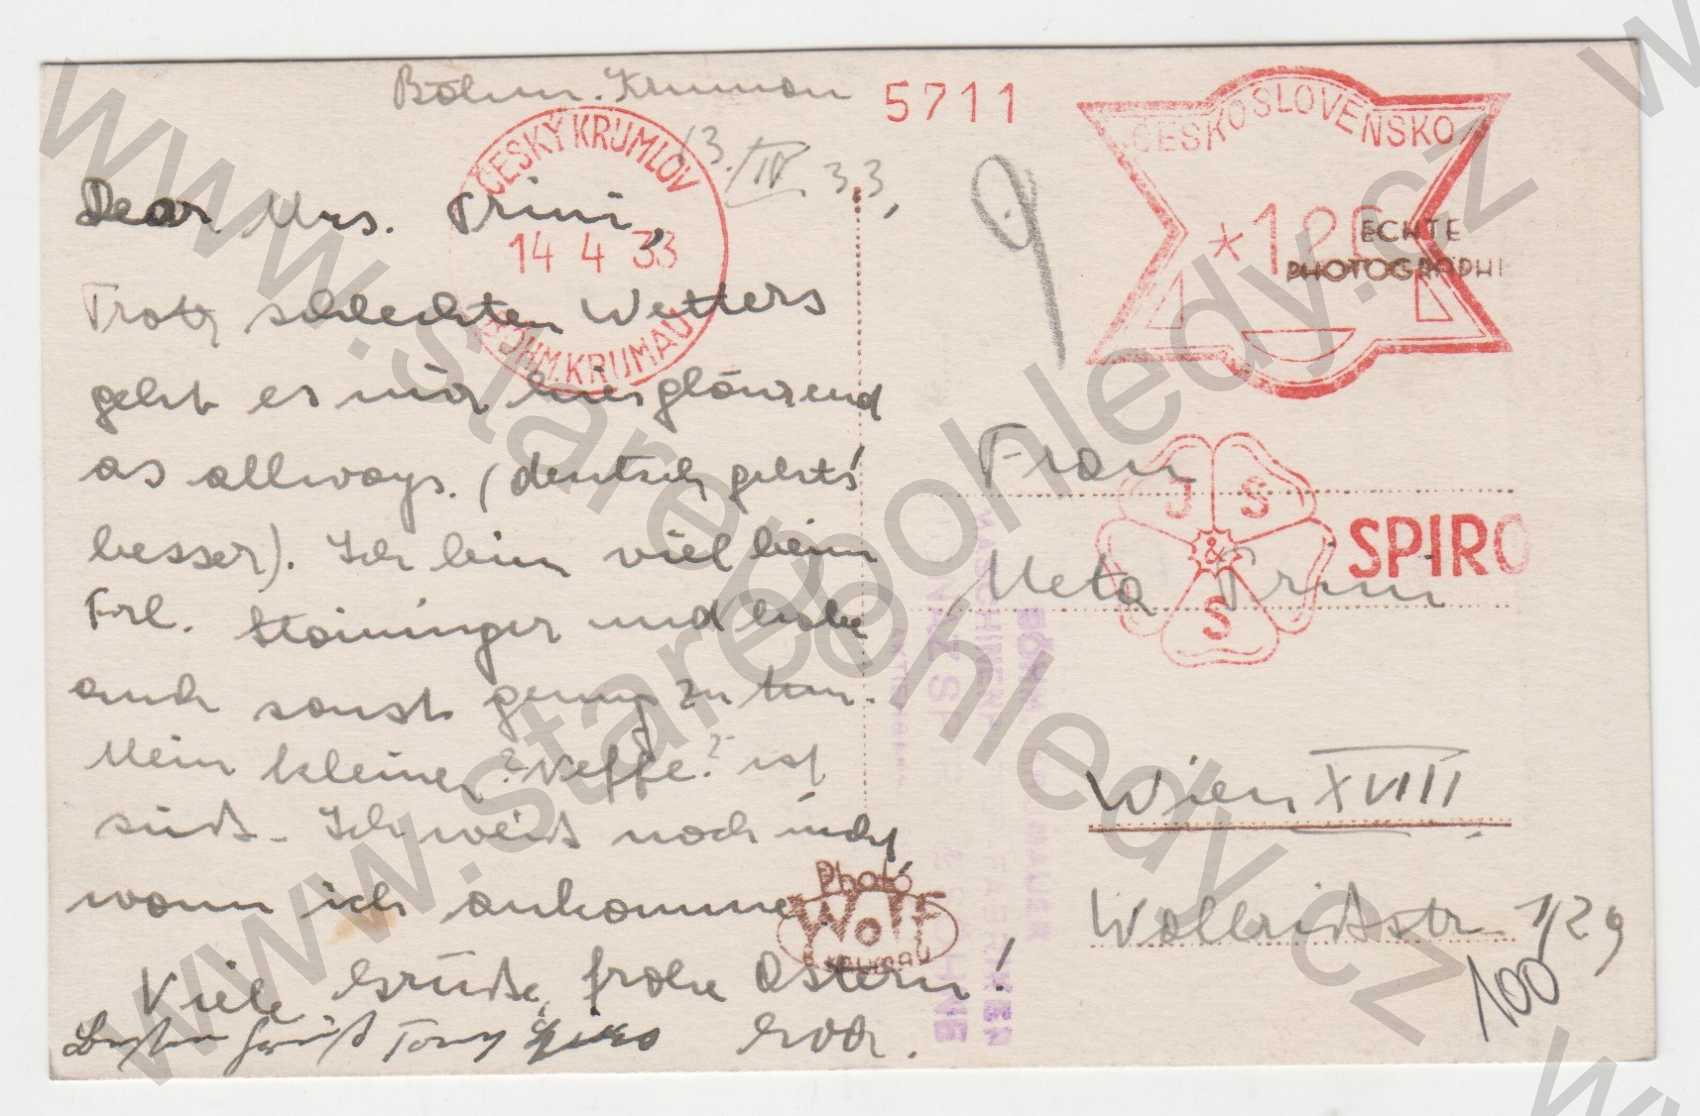 Böhm. Krumau
13. IV. 33,
Dear Mrs. Prini,
Trotz schlechten Wetters
geht es mir hier glänzend
as allways. (deutsch geht's
besser). Ich bin viel beim
Frl. Staininger und habe
auch sonst genug zu tun.
Mein kleiner ? Neffe? ist
süß. Ich weiß noch nicht,
wann ich ankomme
Viele Grüße, frohe Ostern!
Besten Gruß Tony
5711
ČESKÝ KRUMLOV
14 4 33
BÖHM. KRUMAU
ČESKOSLOVENSKO
*120
ECHTE
PHOTOGRAPHI
9
J S
&
S
SPIRO
Frau
Meta Prini
Wien XVIII
1/29
100
Photo
Wolf
B. KRUMAU
www.starepohledy.cz
www.starepohledy.cz